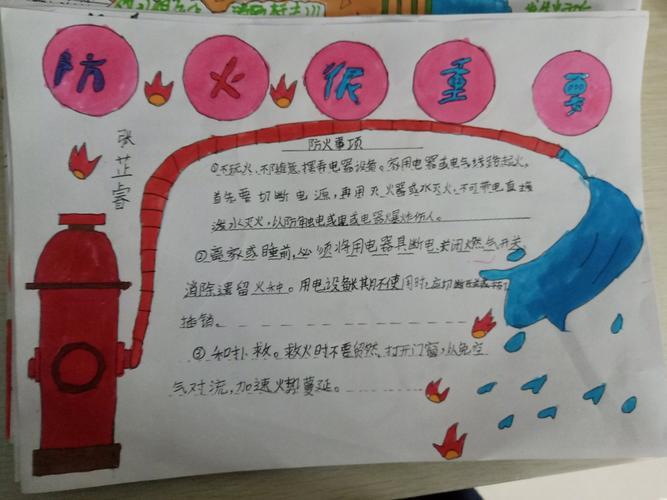 防火很重要
张芷睿
防火事项
①不玩火、不随意摆弄电器设备。家用电器或电气线路起火,
首先要切断电源,再用灭火器或水灭火,不可带电直接
泼水灭火,以防触电或电器爆炸伤人。
②离家或睡前,必须将用电器具断电,关闭燃气开关,
消除遗留火种。用电设备长期不使用时,应切断
插销。
③和扑救。救火时不要贸然打开门窗,以免空
气对流,加速火势蔓延。